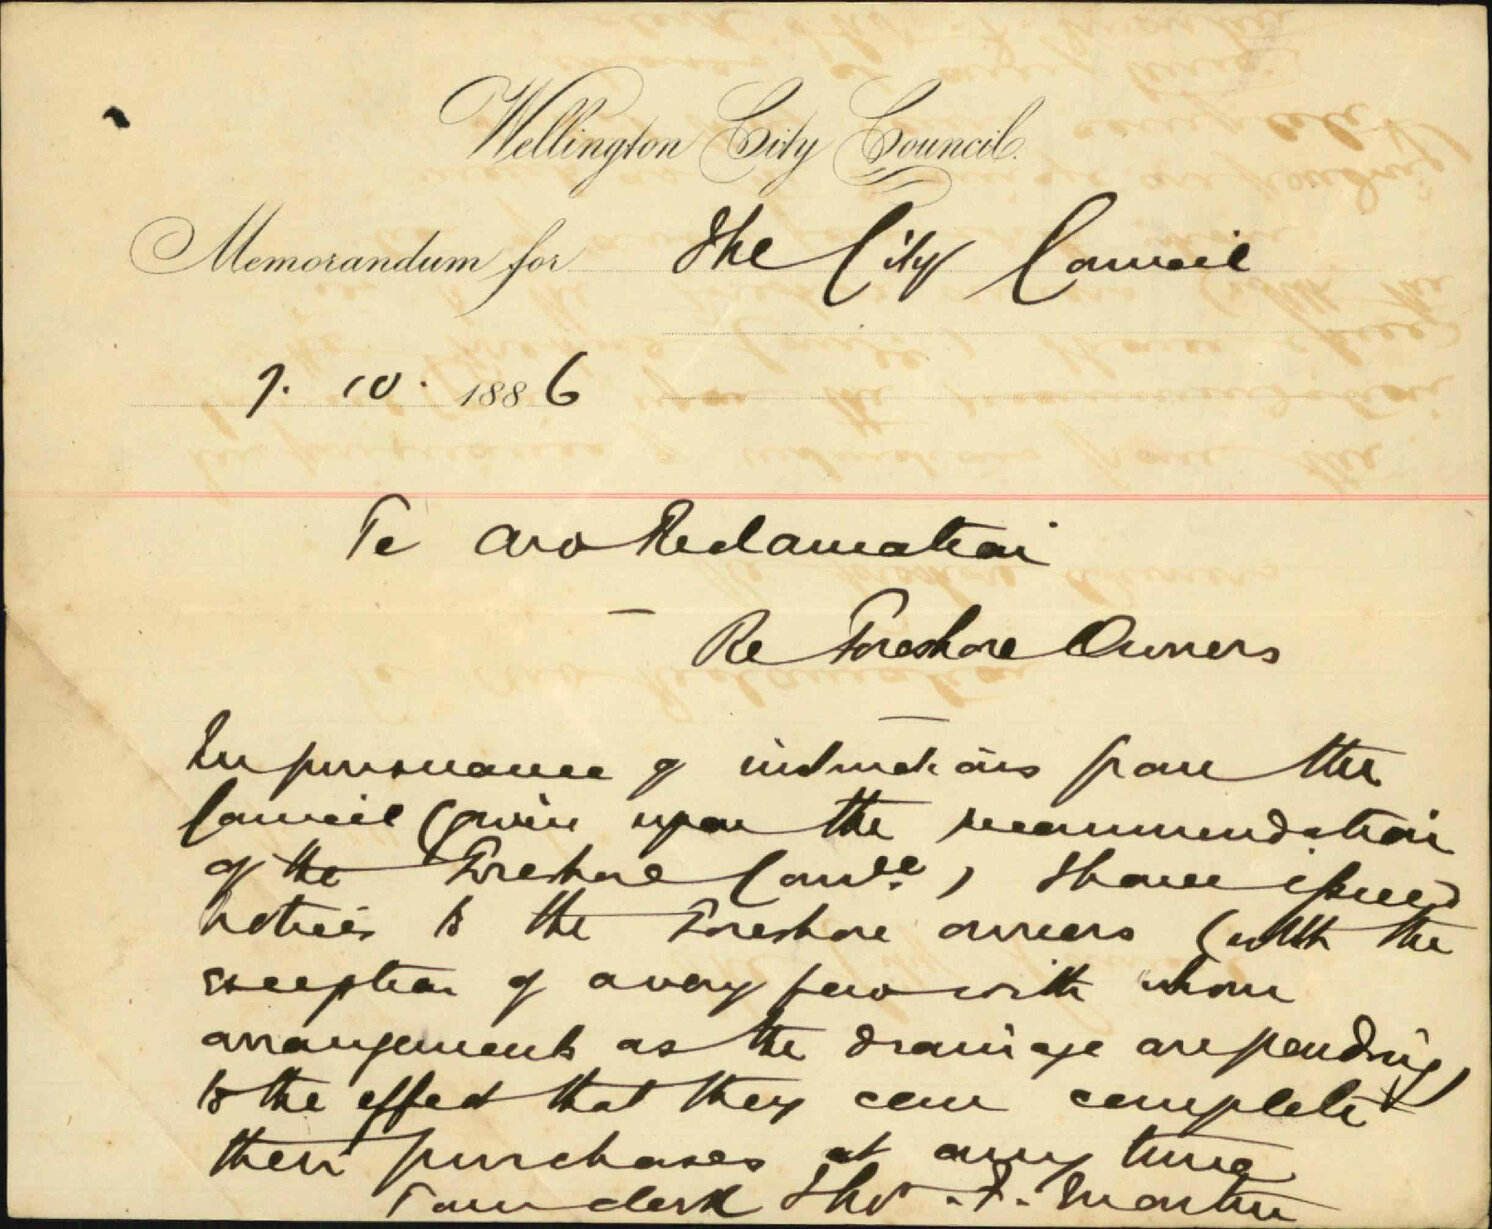 Wellington City Council.
Memorandum for The City Council
7. 10. 1886
Te Aro Reclamation
Re Foreshore Owners
In pursuance of instructions from the
Council (given upon the recommendation
of the Foreshore Comtee.) I have issued
notices to the Foreshore owners (with the
exception of a very few with whom
arrangements as the drainage are pending)
to the effect that they can complete
their purchases at any time
Town clerk Thos. F. Martin